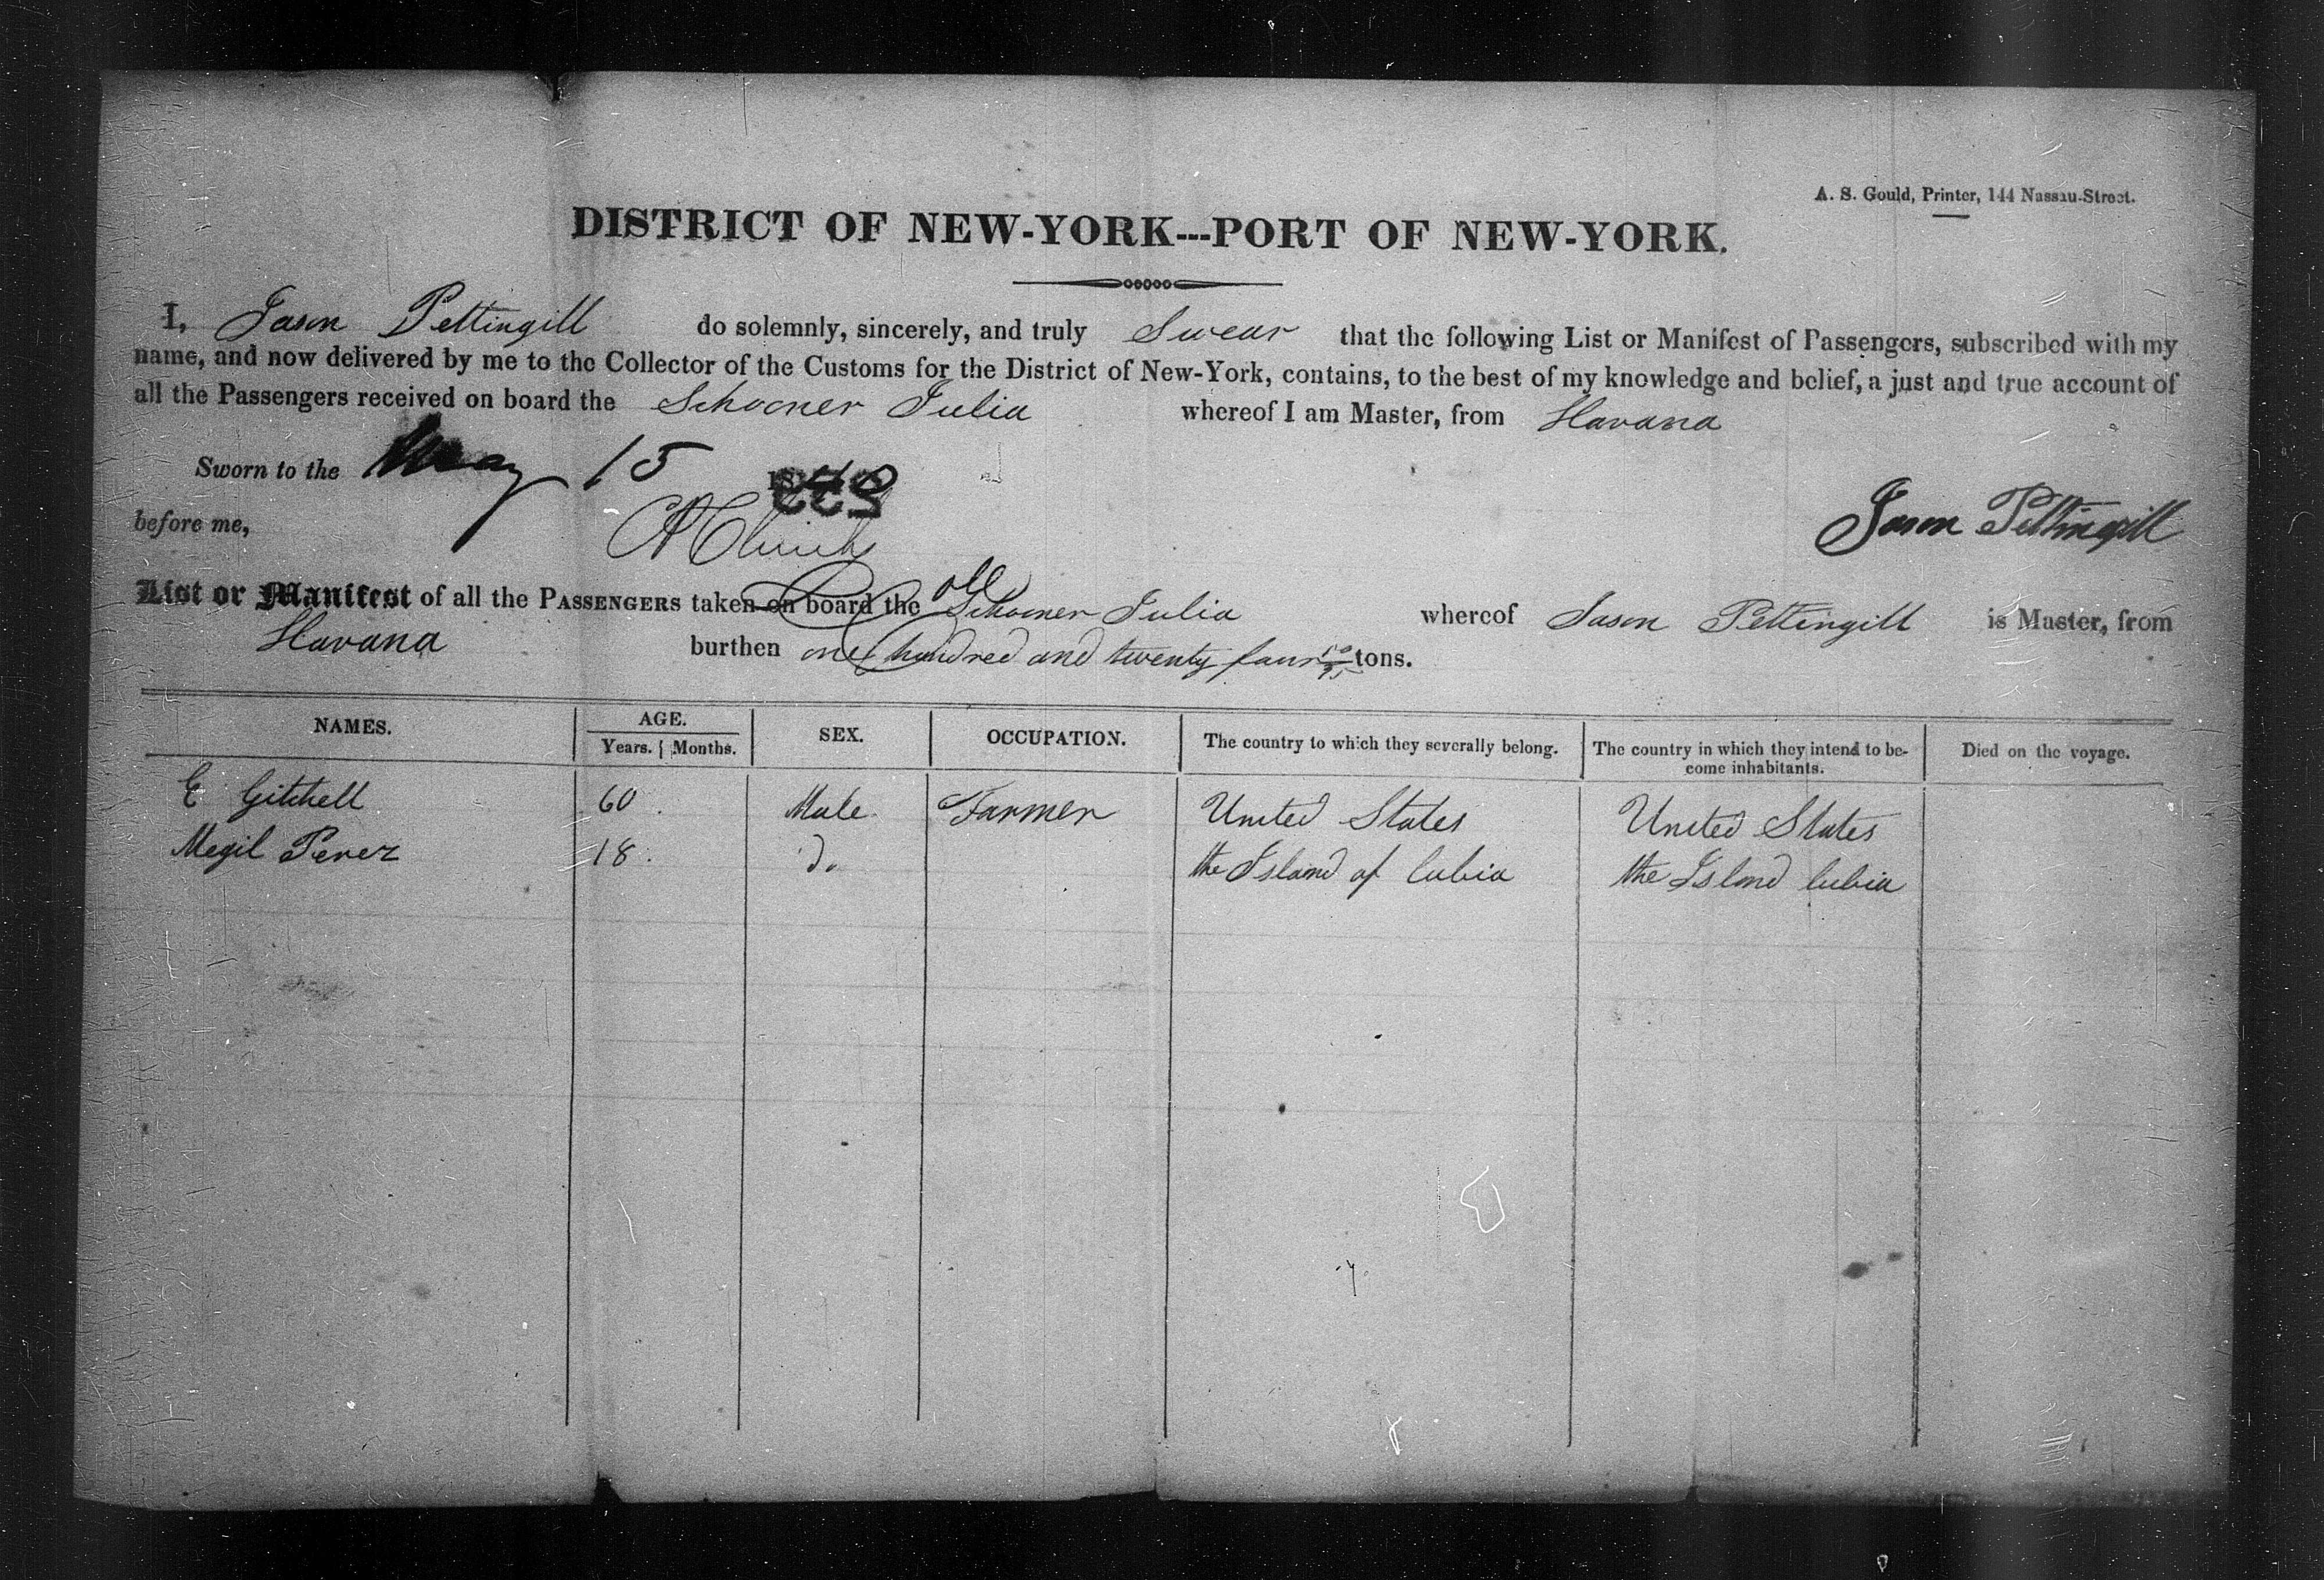 A. S. Gould, Printer, 144 Nassau-Street.
DISTRICT OF NEW-YORK---PORT OF NEW-YORK.
I, Jason Pettingill do solemnly, sincerely, and truly Swear that the following List or Manifest of Passengers, subscribed with my
name, and now delivered by me to the Collector of the Customs for the District of New-York, contains, to the best of my knowledge and belief, a just and true account of
all the Passengers received on board the Schooner Julia whereof I am Master, from Havana
Sworn to the May 15
before me,
Jason Pettingill
List or Manifest of all the PASSENGERS taken on board the Schooner Julia whereof Jason Pettingill is Master, from
Havana burthen one hundred and twenty four tons.
NAMES. AGE. SEX. OCCUPATION. The country to which they severally belong. The country in which they intend to be- Died on the voyage.
Years. Months. come inhabitants.
E Gitchell 60 Male Farmer United States United States
Megil Perez 18 do the Island of Cubia the Island Cubia